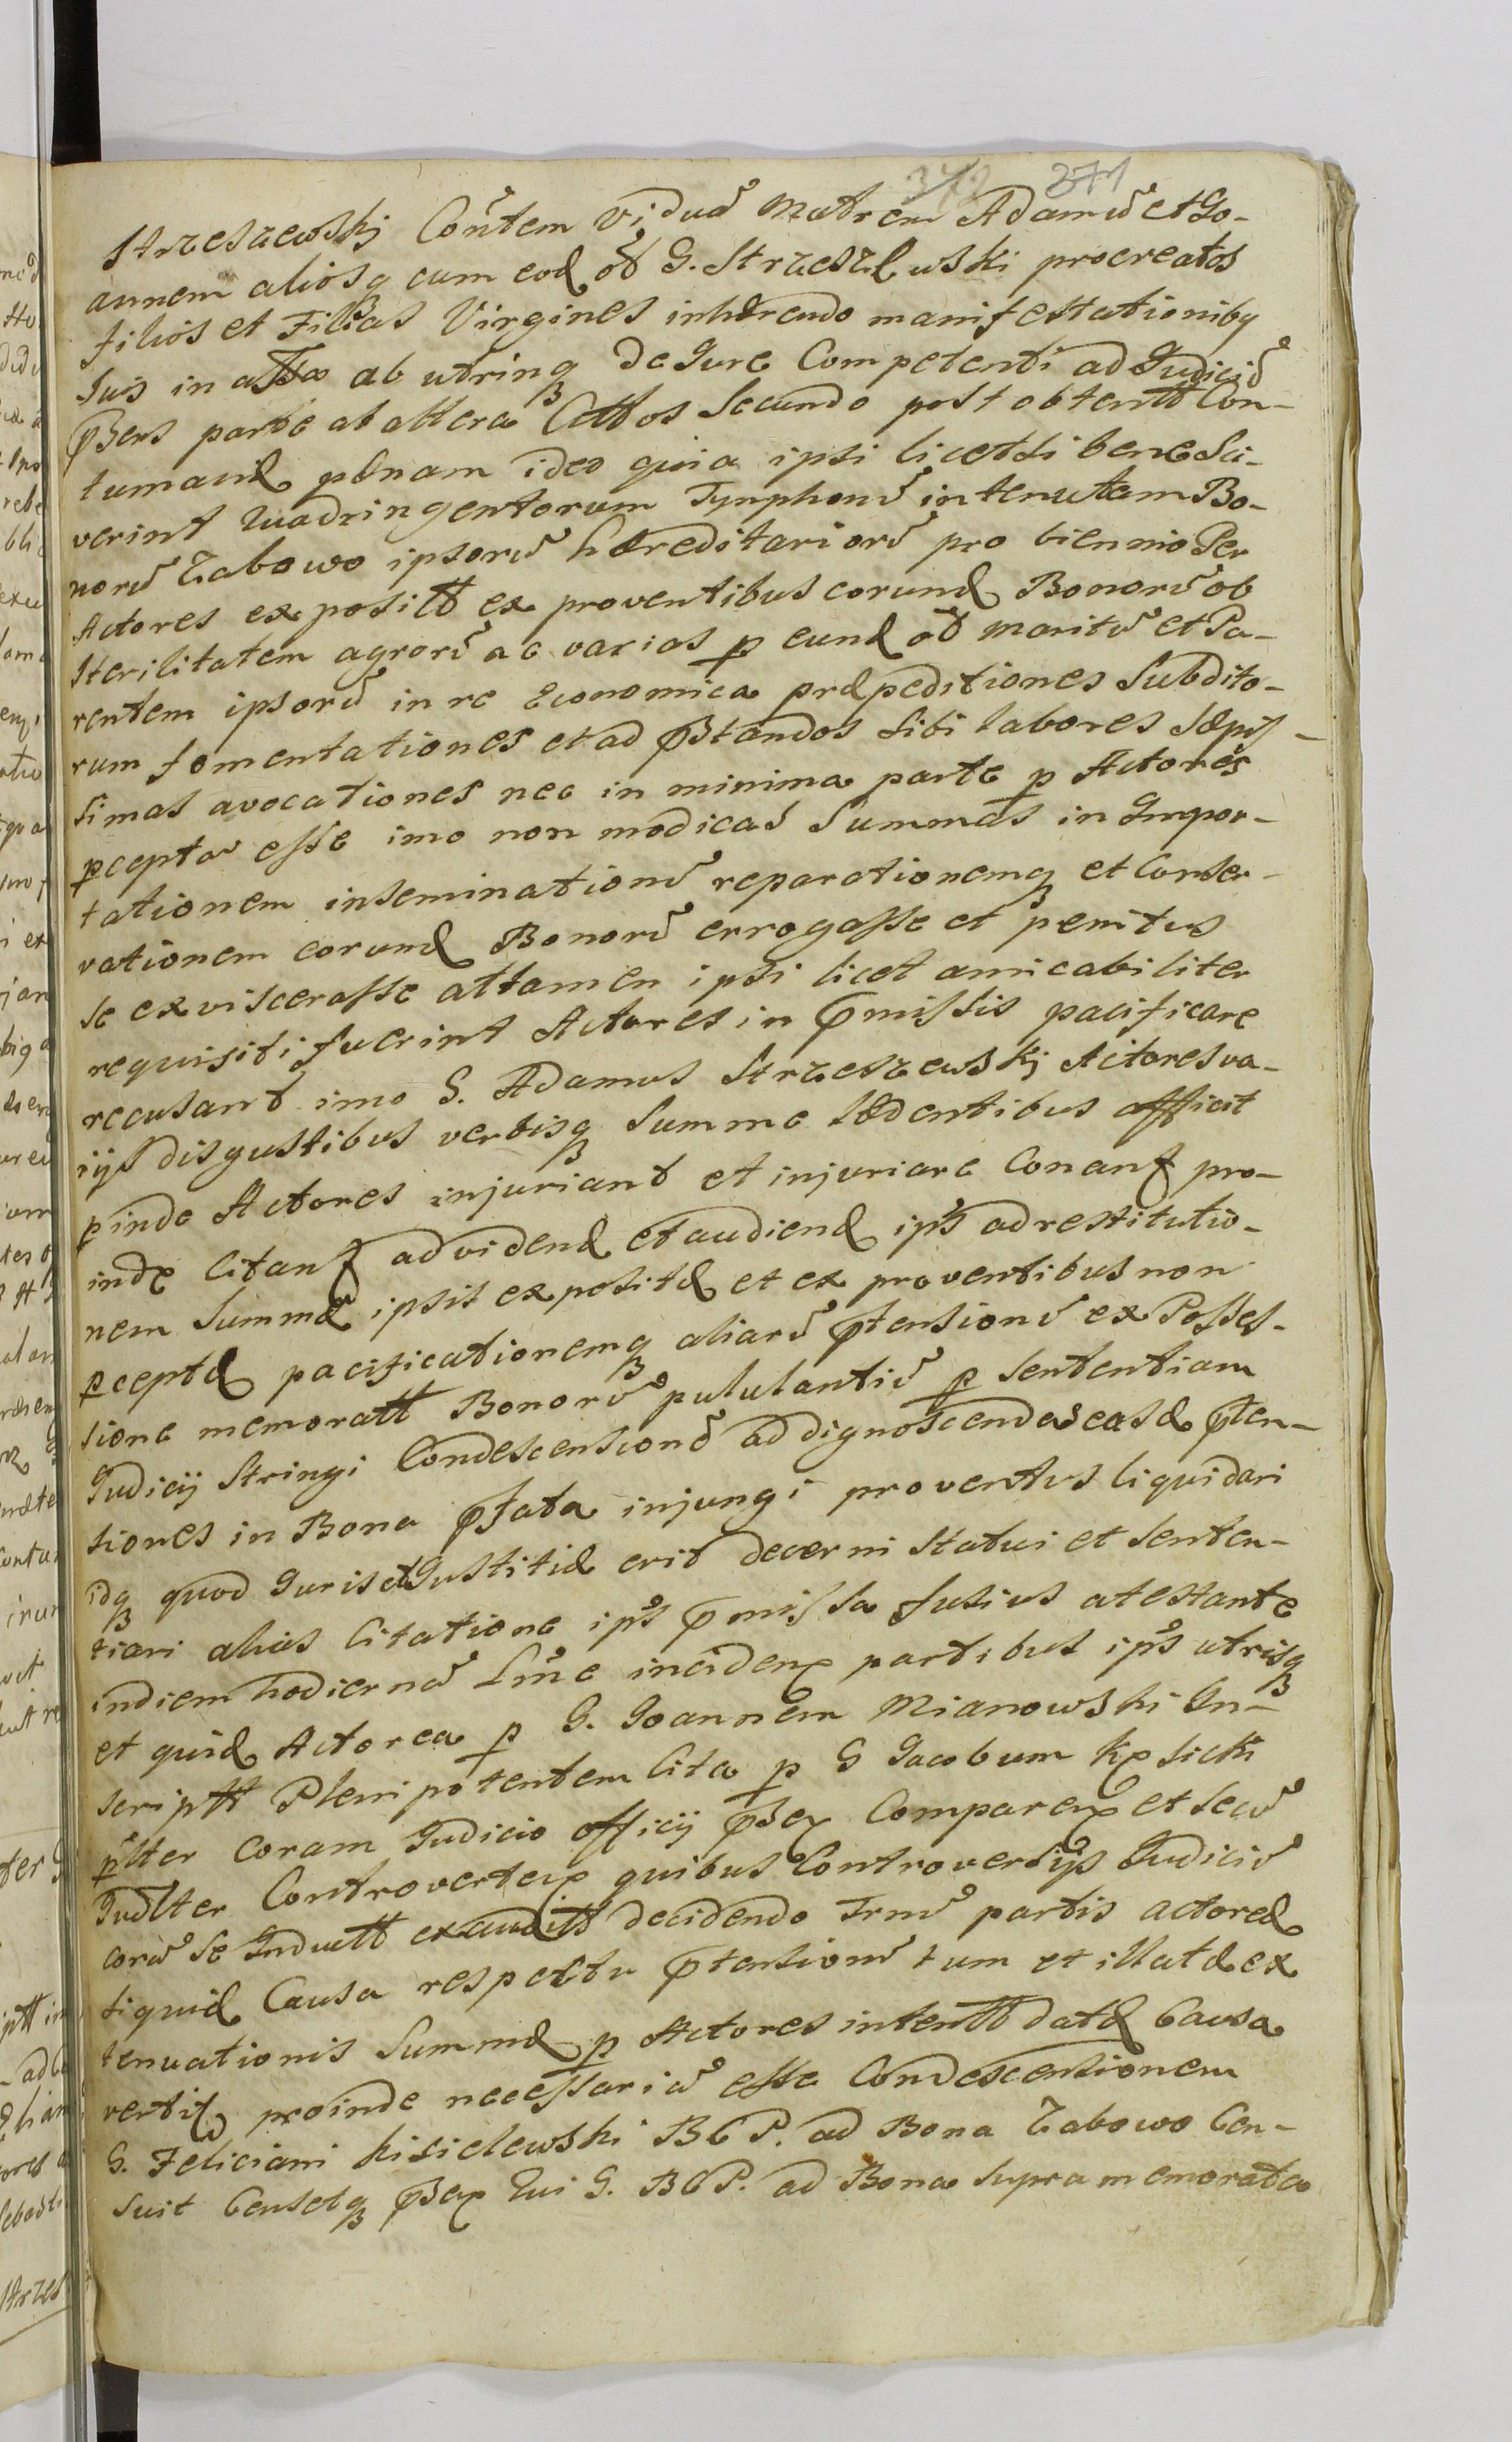 372 371
Strzeszewskj Cõntem Viduã Matrem Adamũ et Jo-
annem aliosq cum eod õb G. Strzeszewski procreatos
filios et Filias Virgines inhærendo manifestationibq
suis in actis ab utrinq de Jure Competenti ad Judiciũ
pñs parte ab altera Cittos Secundo post obtentt Con-
tumaciæ pænam ideo quia ipsi licet si bene Sci-
verint quadringentorum Tynphonũ in tenutam Bo-
norũ Zabowo ipsorũ hæreditariorũ pro biennio Per
Actores expositt ex proventibus eorund Bonorũ ob
Sterilitatem agrorũ ac varias p eund õb Maritũ et Pa-
rentem ipsorũ in re Economica præpeditiones Subdito-
rum fomentationes et ad pstandos Sibi labores Sæpis-
simas avocationes nec in minima parte p Actores
pcepta esse imo non modicas Summas in Impor-
tationem inseminationũ reparationemq et Conser-
vationem eorund Bonorũ errogasse et penitus
se exviscerasse attamen ipsi licet amicabiliter
requisiti fuerint Actores in pmissis pacificare
recusant imo G. Adamus Strzeszewskj Actores va-
rijs disgustibus verbisq Summe lædentibus afficit
pinde Actores injuriant et injuriare Conantr pro-
inde Citantr ad vidend et audiend ips ad restitutio-
nem Summæ ipsis expositæ et ex proventibus non
pceptæ pacificationemq aliarũ ptensionũ ex Posses-
sione memoratt Bonorũ pululantiũ p Sententiam
Judicij Stringi Condescensionẽ ad dignoscendas easd pten-
siones in Bona pfata injungi proventus liquidari
idq quod Juris et Justitiæ erit decerni Statui et Senten-
tiari alias Citatione ips pmissa fusius atestante
in diem hodiernã Lme inciden partibus ips utrisq
et quid Actorea p G. Joannem Mianowski In-
scriptt Plenipotentem Cita p G Jacobum
pltter Coram Judicio officij pñs Comparen et Secũ
Judltter Controverten quibus Controversijs Judiciũ
eorũ se Inductt exauditt decidendo Trnũ partis actoreæ
siquid Causa respectu ptensionũ tum et illatæ ex
tenuationis Summæ p Actores intentt datæ Causa
vertitr proinde necessariũ esse Condescensionem
G. Feliciani Kisielewski B C P. ad Bona Zabowo Cen-
suit Censetq pñs Qui G. B C P. ad Bona Supra memorata